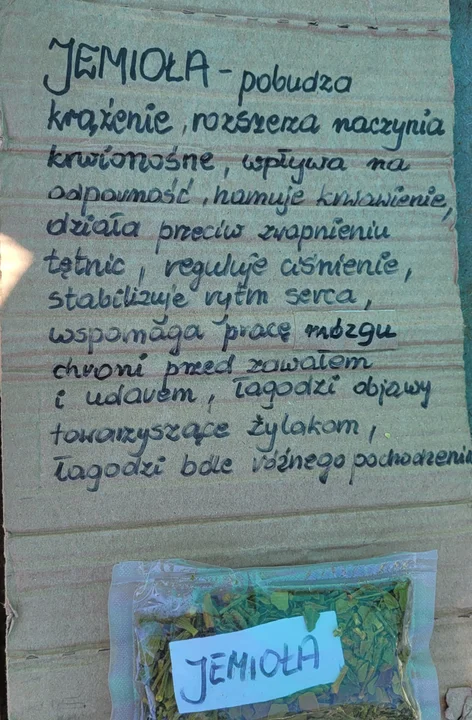 JEMIOŁA - pobudza
krążenie, rozszerza naczynia
krwionośne, wpływa na
odporność, hamuje krwawienie,
działa przeciw zwapnieniu
tętnic, reguluje ciśnienie,
stabilizuje rytm serca,
wspomaga pracę mózgu
chroni przed zawałem
i udarem, łagodzi objawy
towarzyszące żylakom,
łagodzi bóle różnego pochodzenia
JEMIOŁA